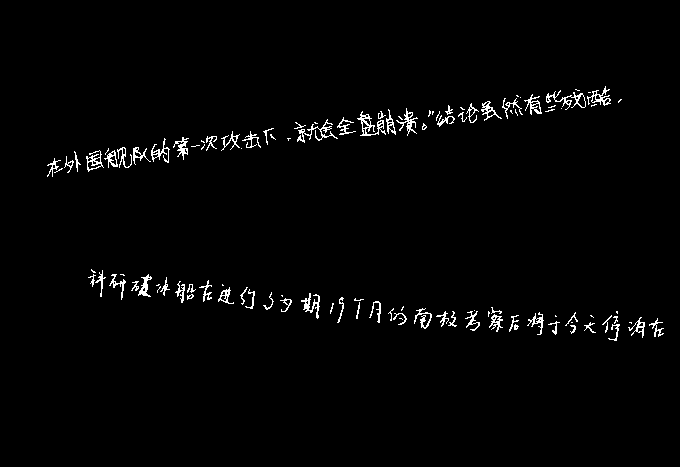 在外国舰队的第一次攻击下，就会全盘崩溃。"结论虽然有些残酷，
科研破冰船在进行了为期19个月的南极考察后将于今天停泊在